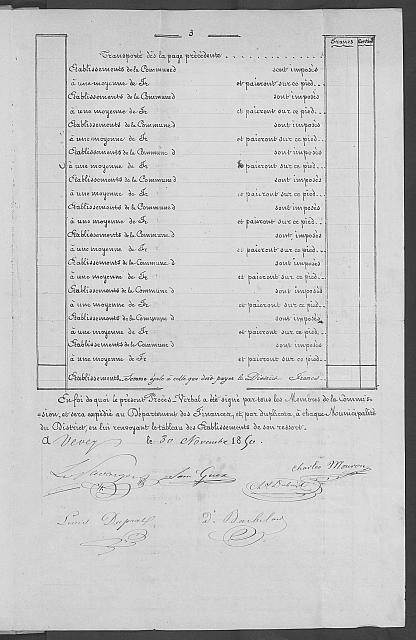 3
Francs
Transporté dès la page précédente
Etablissements de la Commune d sont imposés
à une moyenne de Fr et paieront sur ce pied
Etablissements de la Commune d sont imposés
à une moyenne de Fr et paieront sur ce pied
Etablissements de la Commune d sont imposés
à une moyenne de Fr et paieront sur ce pied
Etablissements de la Commune d sont imposés
à une moyenne de Fr paieront sur ce pied
Etablissements de la Commune d sont imposés
à une moyenne de Fr et paieront sur ce pied
Etablissements de la Commune d sont imposés
à une moyenne de Fr et paieront sur ce pied
Etablissements de la Commune d sont imposés
à une moyenne de Fr et paieront sur ce pied
Etablissements de la Commune d sont imposés
à une moyenne de Fr et paieront sur ce pied
Etablissements de la Commune d sont imposés
à une moyenne de Fr et paieront sur ce pied
Etablissements de la Commune d sont imposés
à une moyenne de Fr et paieront sur ce pied
Etablissements de la Commune d sont imposés
à une moyenne de Fr et paieront sur ce pied
Etablissements. Somme égale à celle que doit payer le District. Francs
En foi de quoi le présent Procès-Verbal a été signé par tous les Membres de la Commis-
sion, et sera expédié au Département des Finances, et, par duplicata, à chaque Municipalité
du District, en lui renvoyant le tableau des Etablissements de son ressort.
à Vevey le 30 Novembre 1850.
Charles Mouron
Louis